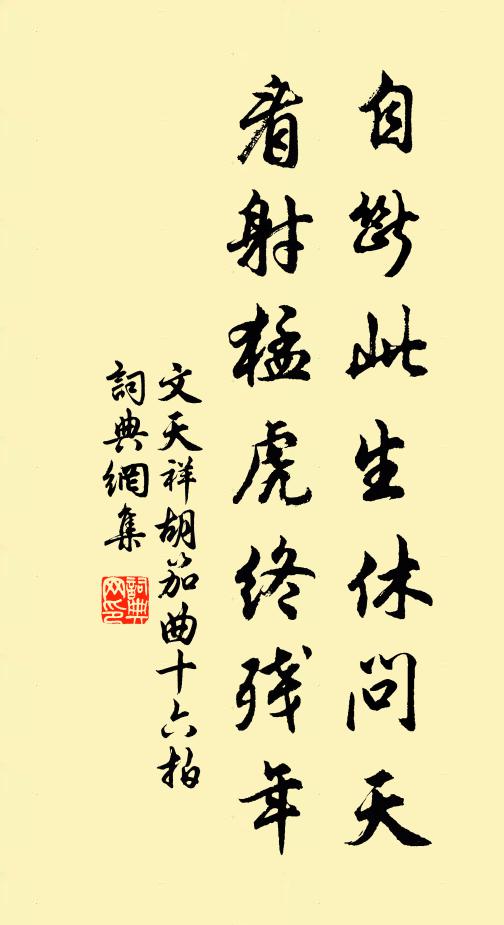 自斷此生休問天
看射猛虎終殘年
文天祥胡笳曲十六拍
詞典網集
詞典
网印